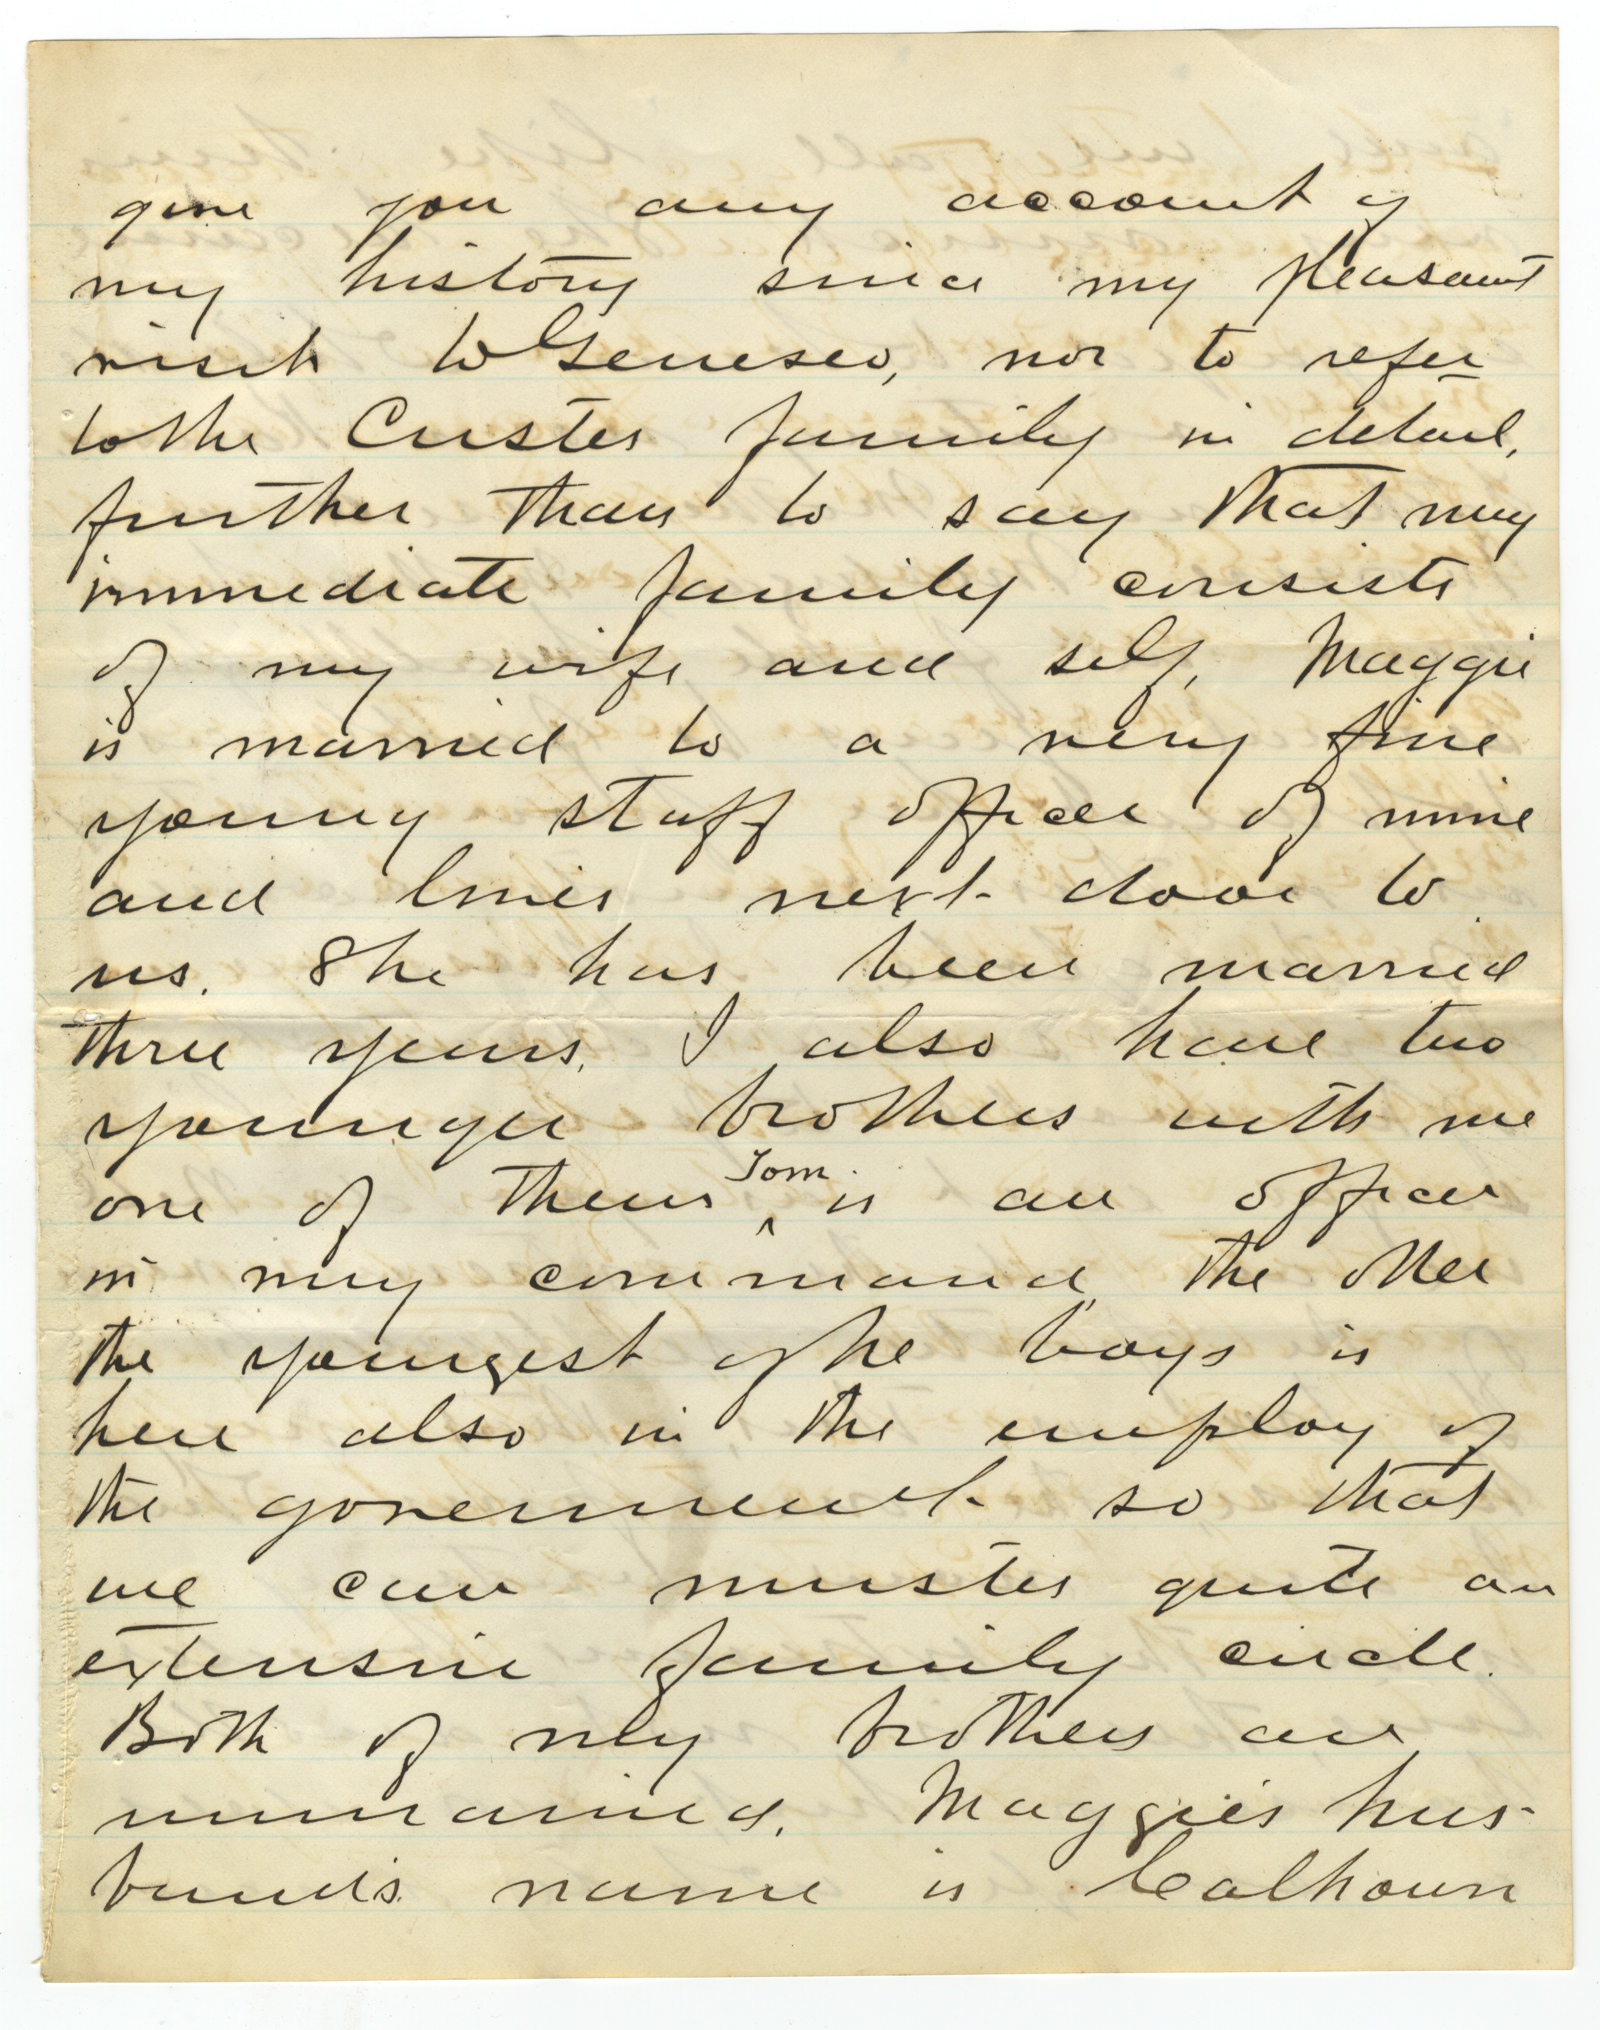 give you any account of
my history since my pleasant
visit to Geneseo, nor to refer
to the Custer family in detail,
further than to say that my
immediate family consists
of my wife and self, Maggie
is married to a very fine
young staff officer of mine
and lives next door to
us. She has been married
three years. I also have two
younger brothers with me
one of them ^Tom is an officer
in my command, the other
the youngest of the boys is
here also in the employ of
the government so that
we can muster quite an
extensive family circle.
Both of my brothers are
unmarried. Maggie's hus-
band's name is Calhoun